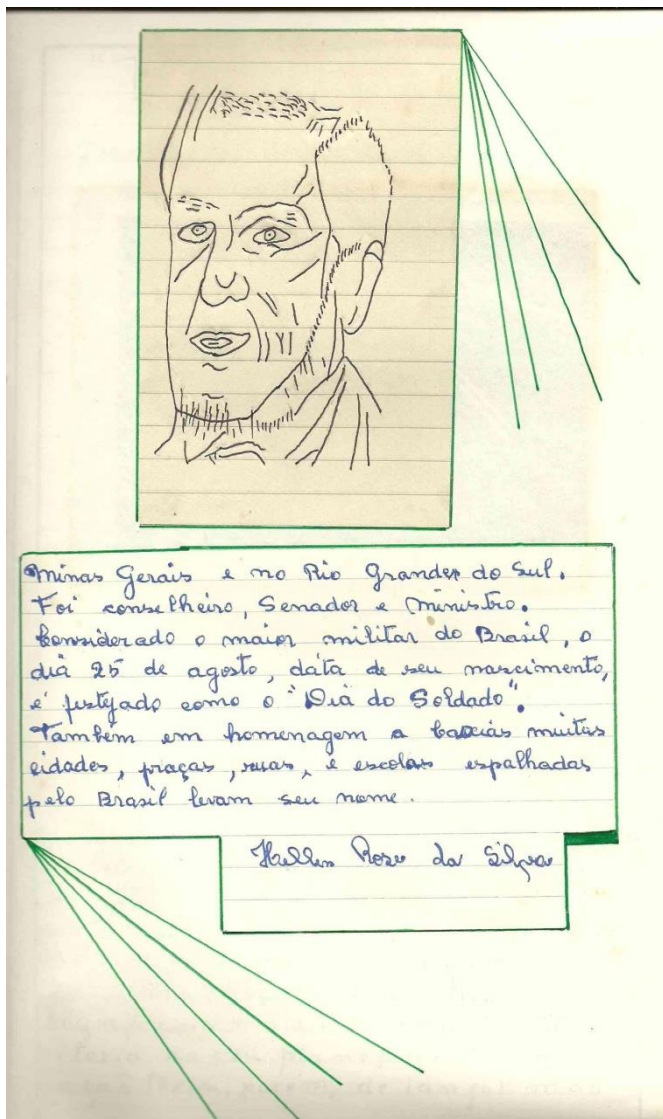 Minas Gerais e no Rio Grande do Sul.
Foi conselheiro, Senador e ministro.
Considerado o maior militar do Brasil, o
dia 25 de agosto, data de seu nascimento,
é festejado como o "Dia do Soldado".
Também em homenagem a Caxias muitas
cidades, praças, ruas, e escolas espalhadas
pelo Brasil levam seu nome.
Hellen Rose da Silva